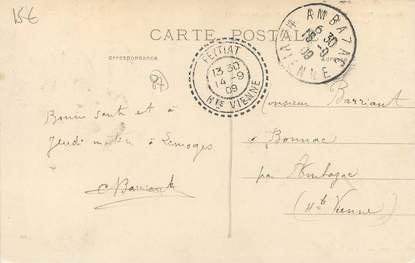 15€
CARTE POSTALE
Correspondance
87
FEYTIAT
13 30
14 -9
09
Hte VIENNE
AMBAZAC
15 30
14 -9
09
Hte VIENNE
Bonne santé et à
Jeudi matin à Limoges
C Barriant
Monsieur Barriant
à Bonnac
par Ambazac
(Hte Vienne)